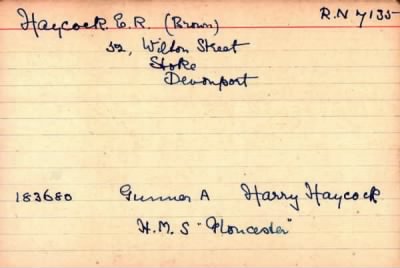 Haycock. E.R. (Brown) R.N 7135
52, Wilton Street
Stoke
Devonport
183680 Gunner A Harry Haycock
H.M.S "Gloucester"